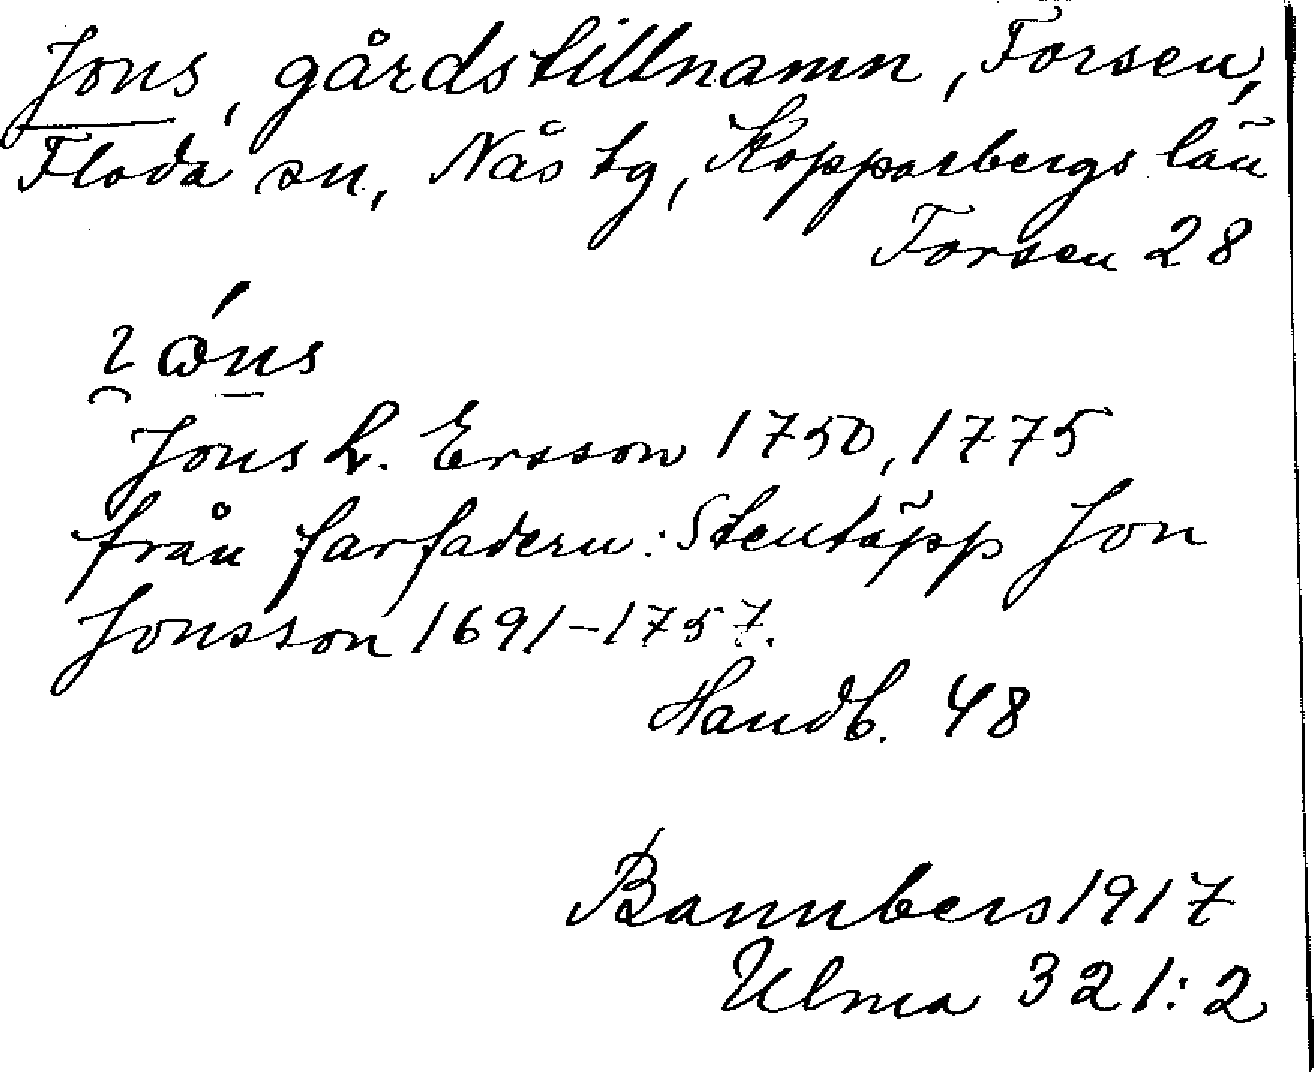 Jons, gårdstillnamn, Forsen,
Floda sn, Nås tg, Kopparbergs län
Forsen 28
Jons L. Ersson 1750, 1775
från farfadern: Stentäpp Jon
Jonsson 1691-1757.
Handb. 48
Bannbers 1917
Ulma 321:2